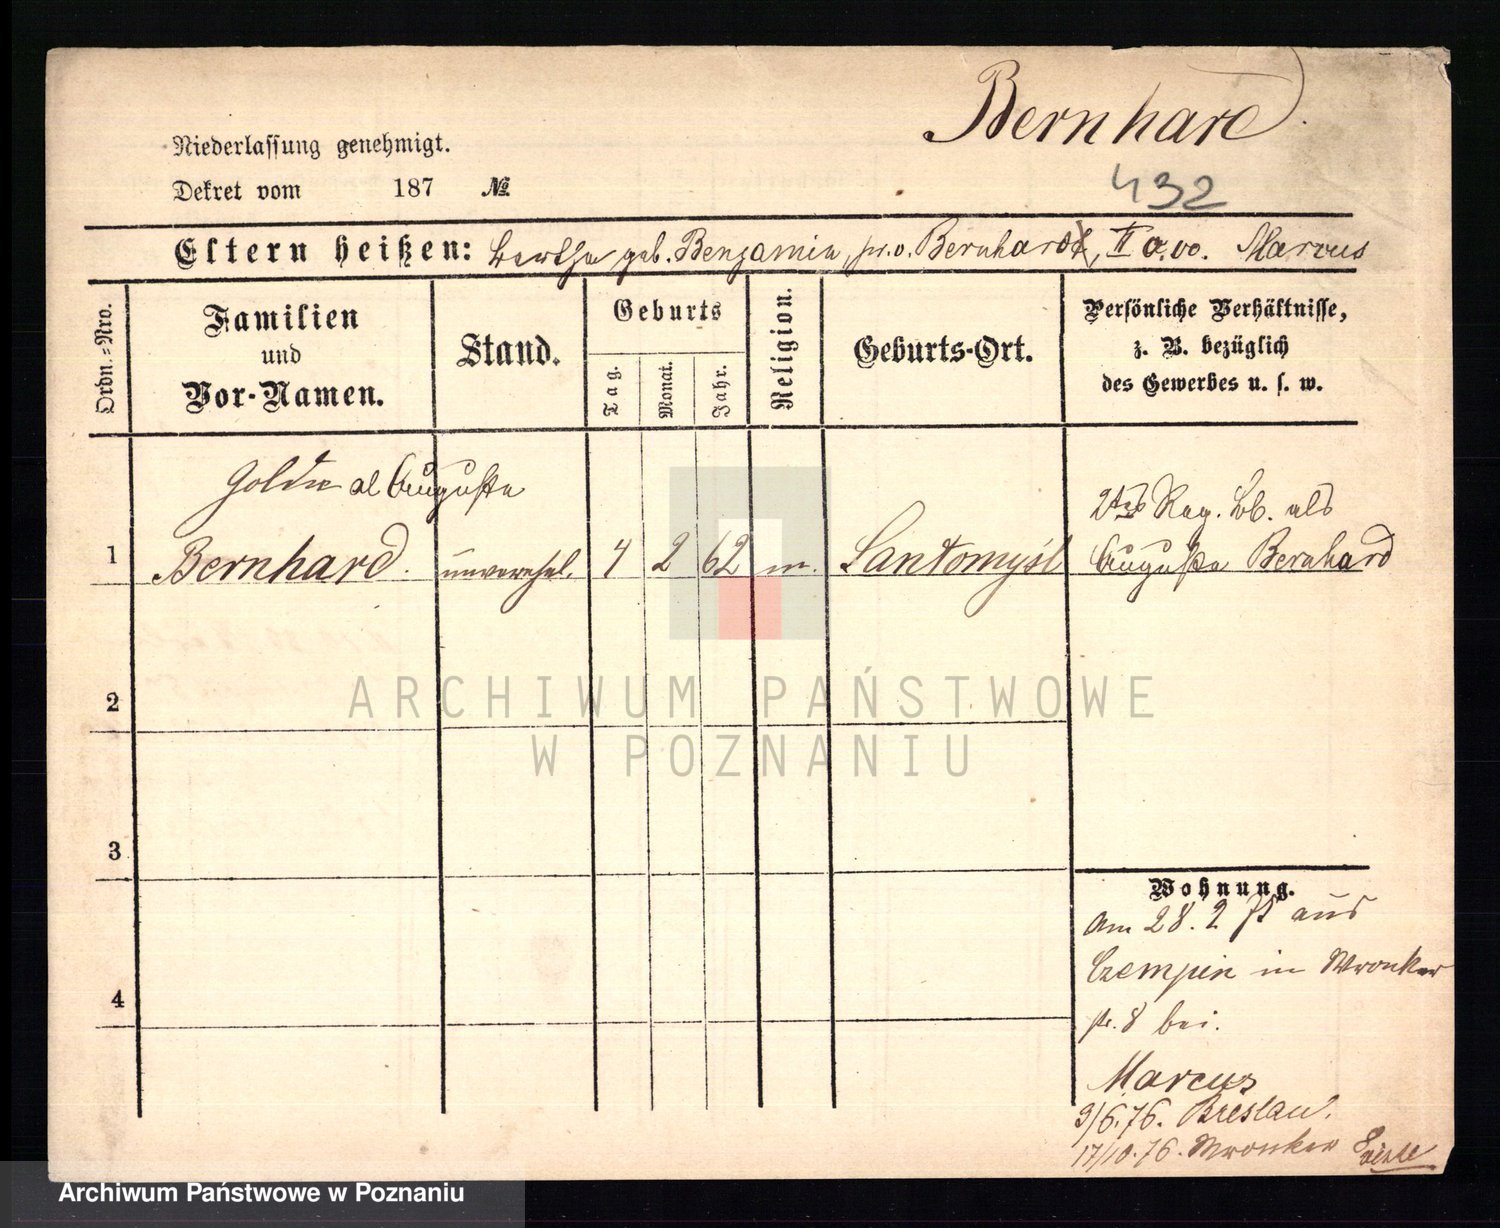 Bernhard
432
Niederlassung genehmigt.
Dekret vom 187 №
Eltern heißen: Bertha geb. Benjamin, pr. v. Bernhardt, II o. vo. Marcus
Ordn.=Nro.
Familien
und
Vor-Namen.
Stand.
Geburts
Tag.
Monat.
Jahr.
Religion.
Geburts-Ort.
Persönliche Verhältnisse,
z. B. bezüglich
des Gewerbes u. s. w.
Golde al Auguste
1 Bernhard. unverehel. 4 2 62 m. Santomyśl
2tes Reg. Lb. als
Auguste Bernhard
2
3
4
Wohnung.
am 28. 2 75 aus
Czempin in Wronker
str. 8 bei.
Marcus
9/6.76. Breslau.
17/10.76. Wronker
ARCHIWUM PAŃSTWOWE
W POZNANIU
Archiwum Państwowe w Poznaniu